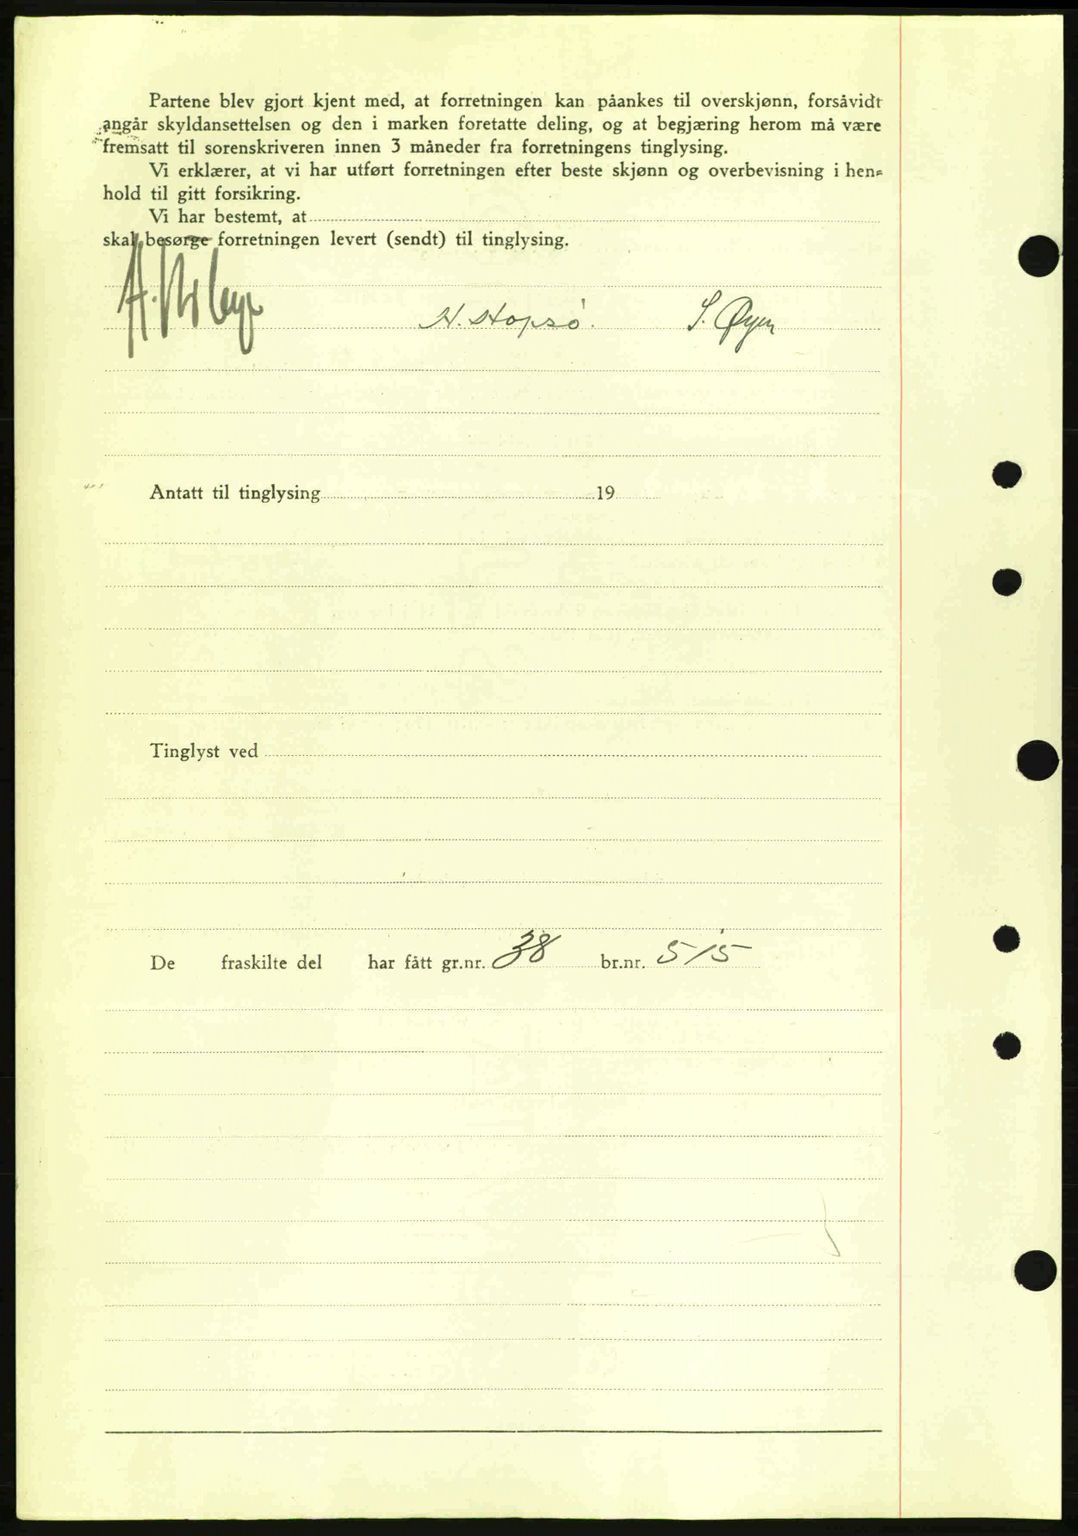 Partene blev gjort kjent med, at forretningen kan påankes til overskjønn, forsåvidt
angår skyldansettelsen og den i marken foretatte deling, og at begjæring herom må være
fremsatt til sorenskriveren innen 3 måneder fra forretningens tinglysing.
Vi erklærer, at vi har utført forretningen efter beste skjønn og overbevisning i hen=
hold til gitt forsikring.
Vi har bestemt, at
skal besørge forretningen levert (sendt) til tinglysing.
N. Hopsø. S. Øyen
Antatt til tinglysing 19
Tinglyst ved
De fraskilte del har fått gr.nr. 38 br.nr. 515